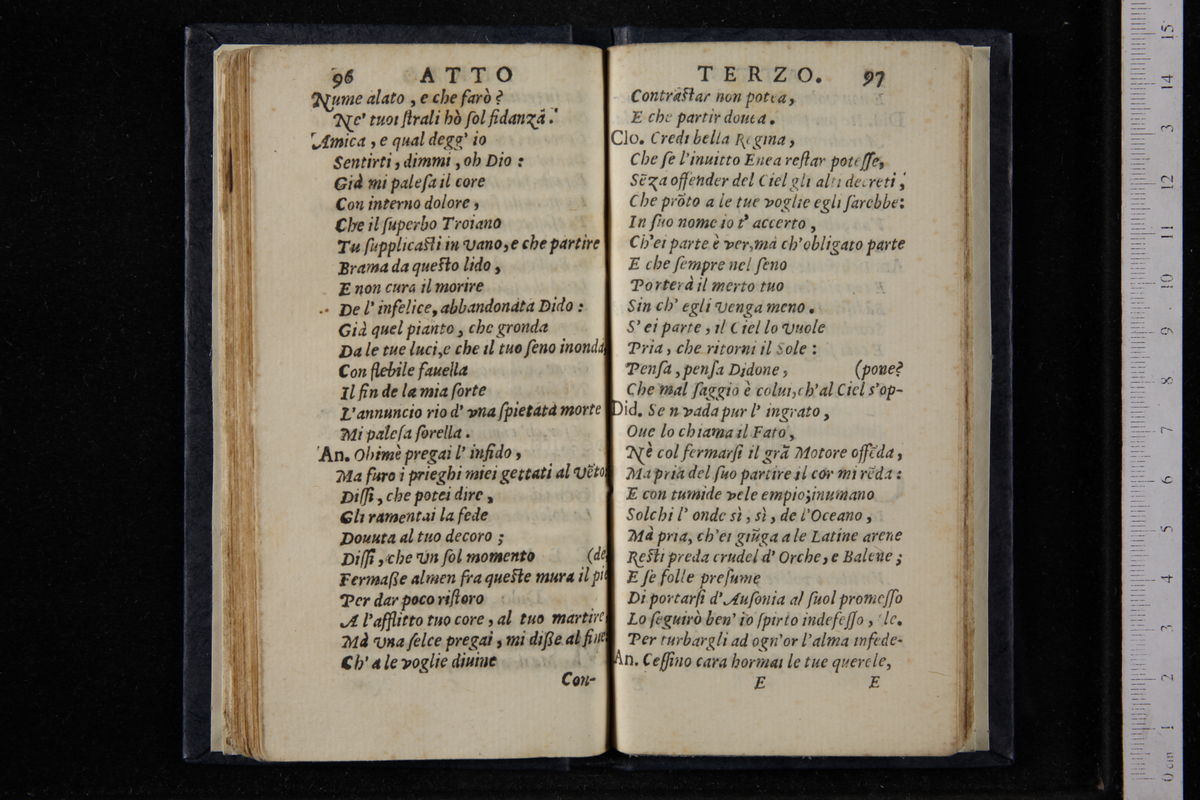 96 ATTO
Nume alato, e che farò?
Ne' tuoi ſtrali hò ſol fidanzā.
Amica, e qual degg' io
Sentirti, dimmi, oh Dio:
Già mi paleſa il core
Con interno dolore,
Che il ſuperbo Troiano
Tu ſupplicaſti in vano, e che partire
Brama da queſto lido,
E non cura il morire
De l' infelice, abbandonata Dido:
Già quel pianto, che gronda
Da le tue luci, e che il tuo ſeno inonda,
Con flebile fauella
Il fin de la mia ſorte
L'annuncio rio d' vna ſpietata morte
Mi paleſa ſorella.
An. Ohimè pregai l' infido,
Ma furo i prieghi miei gettati al vēto.
Diſſi, che potei dire,
Gli ramentai la fede
Douuta al tuo decoro;
Diſſi, che vn ſol momento (de
Fermaße almen fra queſte mura il piè
Per dar poco riſtoro
A l'afflitto tuo core, al tuo martire
Mà vna ſelce pregai, mi diße al fine
Ch' a le voglie diuine
Con-
TERZO. 97
Contrāſtar non potea,
E che partir douea.
Clo. Credi bella Regina,
Che ſe l'inuitto Enea reſtar poteſſe,
Sēza offender del Ciel gli alti decreti,
Che prōto a le tue voglie egli ſarebbe:
In ſuo nome io t' accerto,
Ch'ei parte è ver, mà ch'obligato parte
E che ſempre nel ſeno
Porterà il merto tuo
Sin ch' egli venga meno.
S' ei parte, il Ciel lo vuole
Pria, che ritorni il Sole:
Penſa, penſa Didone, (pone?
Che mal ſaggio è colui, ch'al Ciel s'op-
Did. Se n vada pur l' ingrato,
Oue lo chiama il Fato,
Nè col fermarſi il grā Motore offēda,
Ma pria del ſuo partire il cor mi rēda:
E con tumide vele empio, inumano
Solchi l' onde sì, sì, de l'Oceano,
Mà pria, ch'ei giūga a le Latine arene
Reſti preda crudel d' Orche, e Balene;
E ſe folle preſume
Di portarſi d'Auſonia al ſuol promeſſo
Lo ſeguirò ben' io ſpirto indefeſſo, le.
Per turbargli ad ogn'or l'alma infede-
An. Ceſſino cara hormai le tue querele,
E E